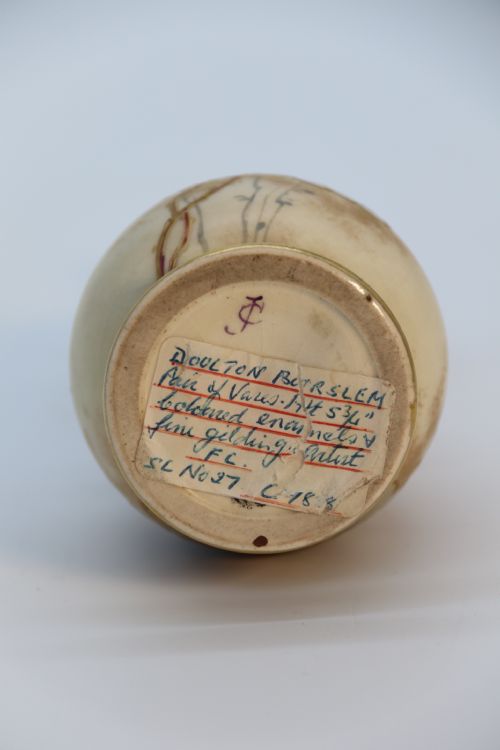 JC
DOULTON BURSLEM
Pair of Vases. Ht 5¾"
coloured enamels &
fine gilding. Artist
F C.
SL No 27 C. 18 8